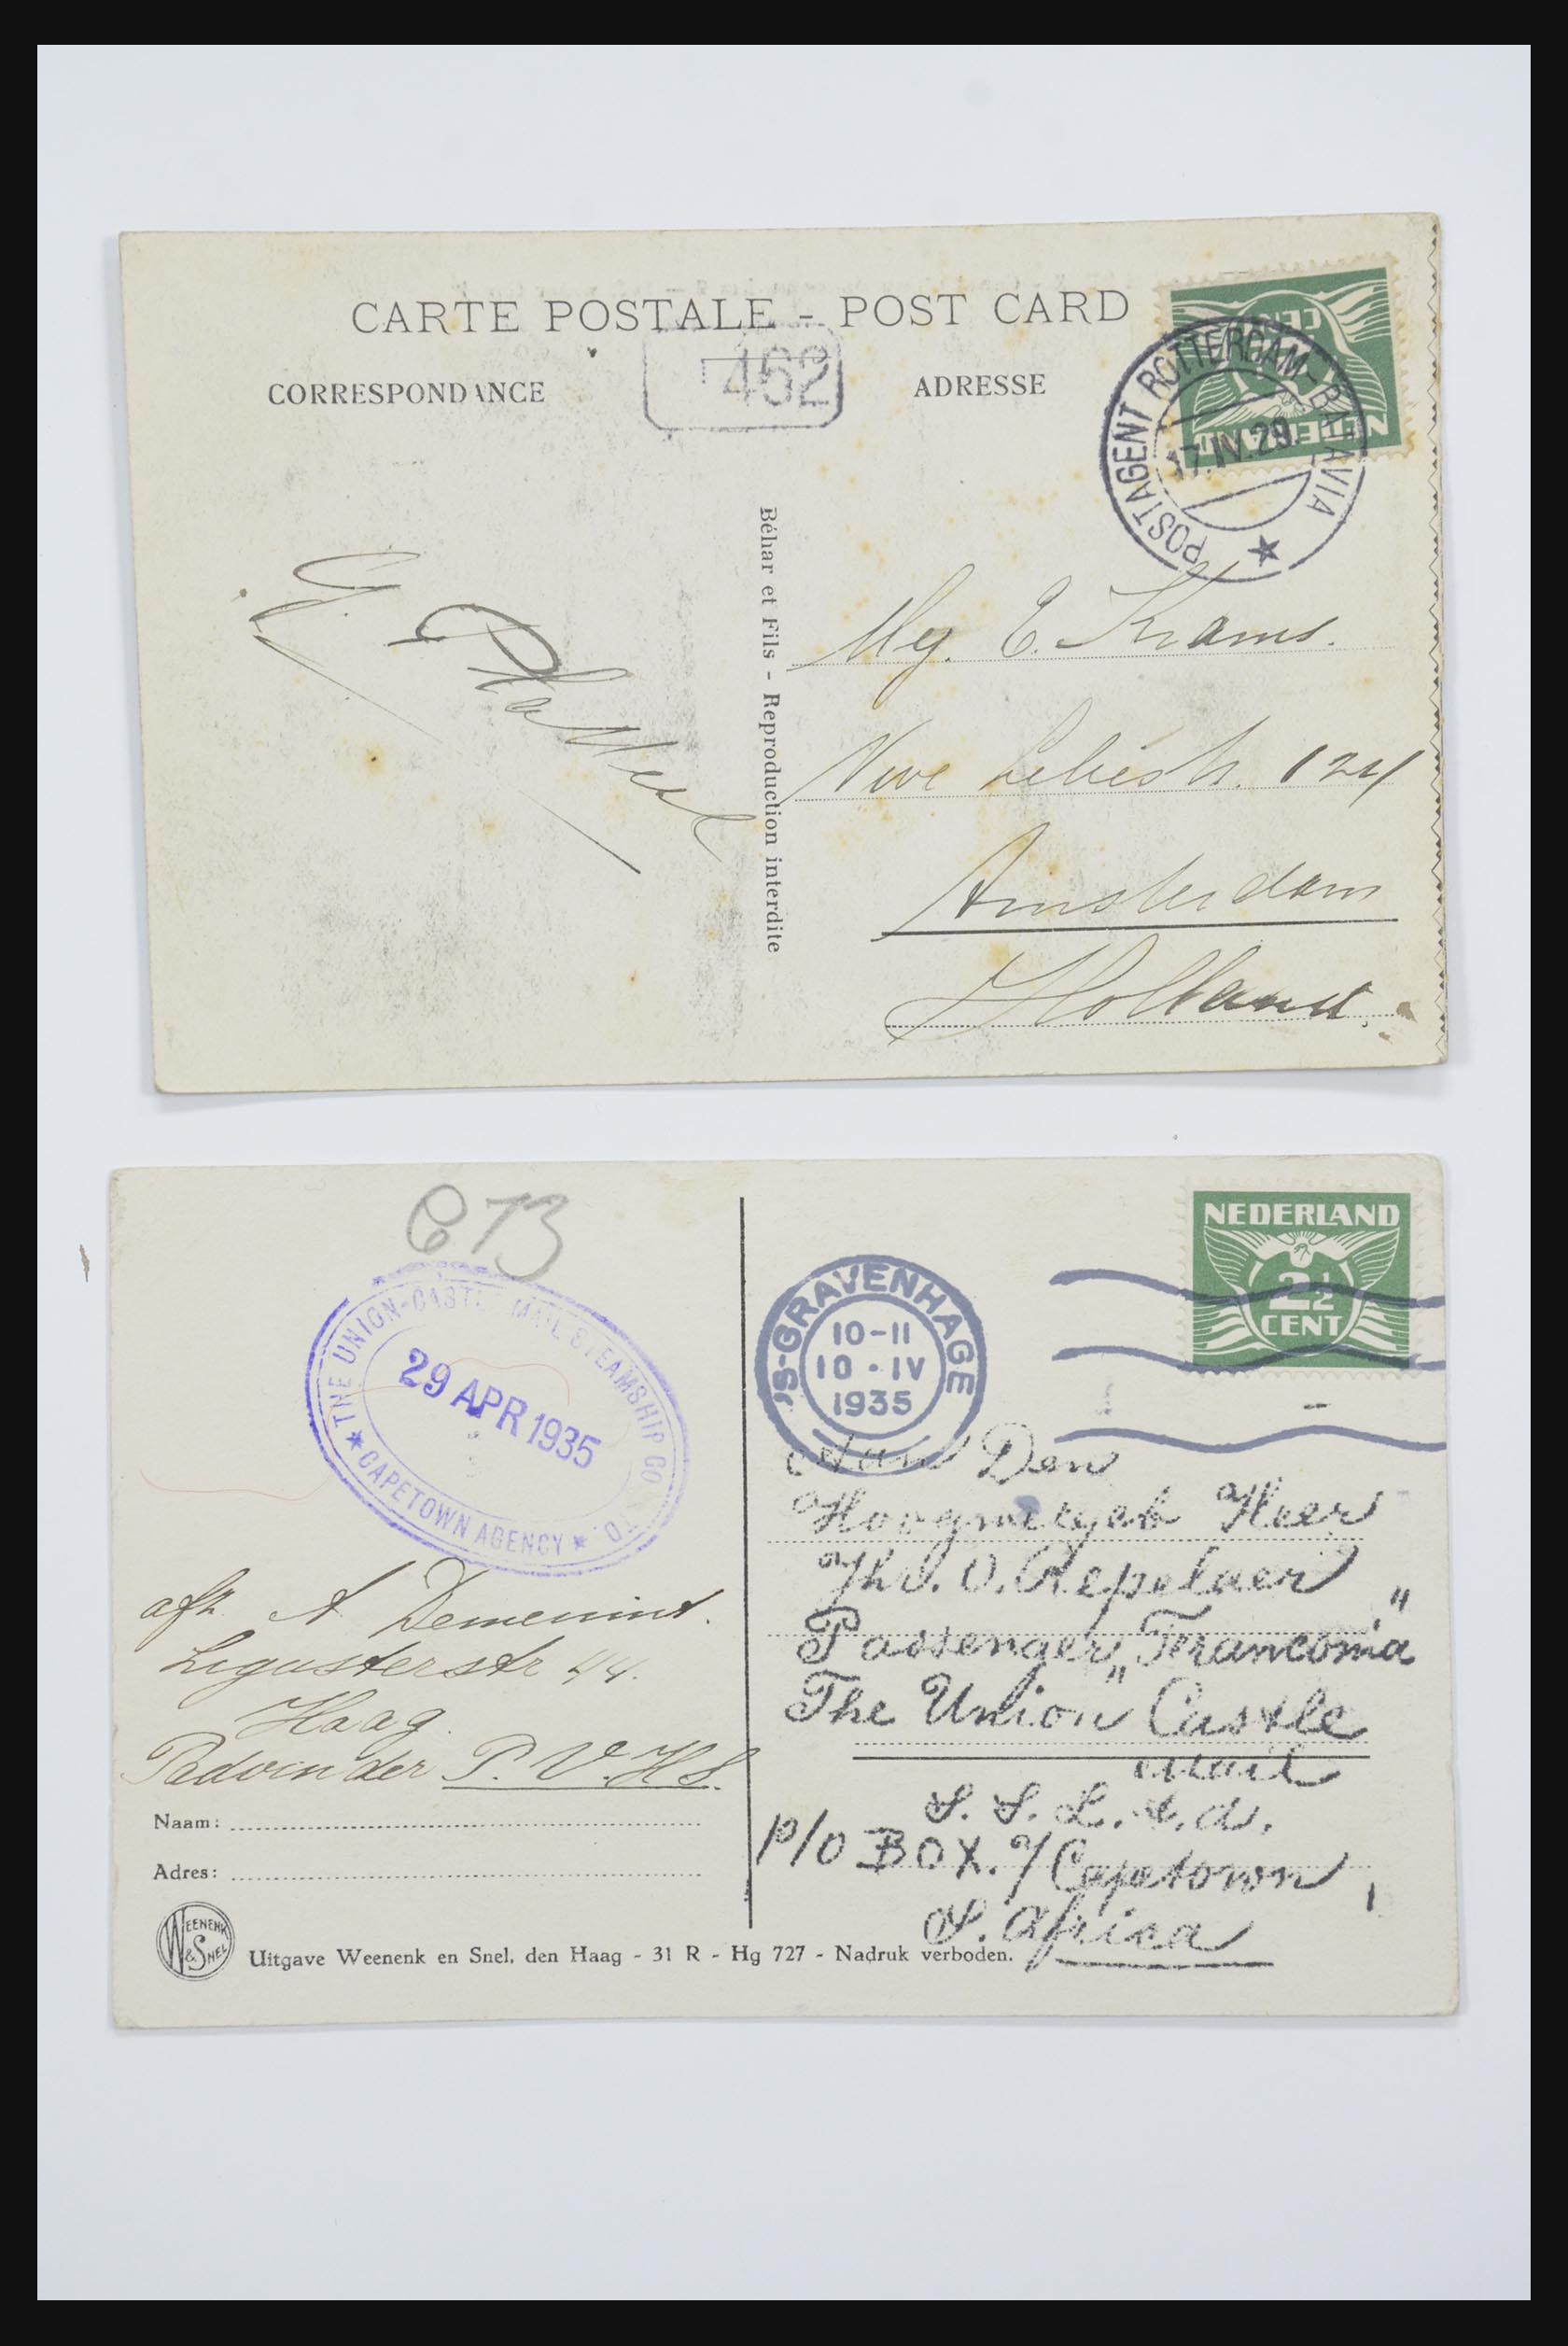 CARTE POSTALE - POST CARD
CORRESPONDANCE
462
ADRESSE
POSTAGENT ROTTERDAM-BATAVIA
17.IV.29.
NEDERLAND
CENT
Béhar et Fils - Reproduction interdite
Mej. E. Krams.
124
Amsterdam
Holland.
613
THE UNION-CASTLE MAIL STEAMSHIP CO LTD.
29 APR 1935
★ CAPETOWN AGENCY ★
'S-GRAVENHAGE
10-11
10·IV
1935
NEDERLAND
2½
CENT
Aan Den
Heer
Repelaer
Passenger
The Union Castle
Mail
S. S. L.t.d.
P/O BOX. 9/ Capetown
S. Africa
afz. A
Ligusterstr 44.
Haag.
Padvinder P.V.H.S.
Naam:
Adres:
WEENENK & SNEL
Uitgave Weenenk en Snel, den Haag - 31 R - Hg 727 - Nadruk verboden.